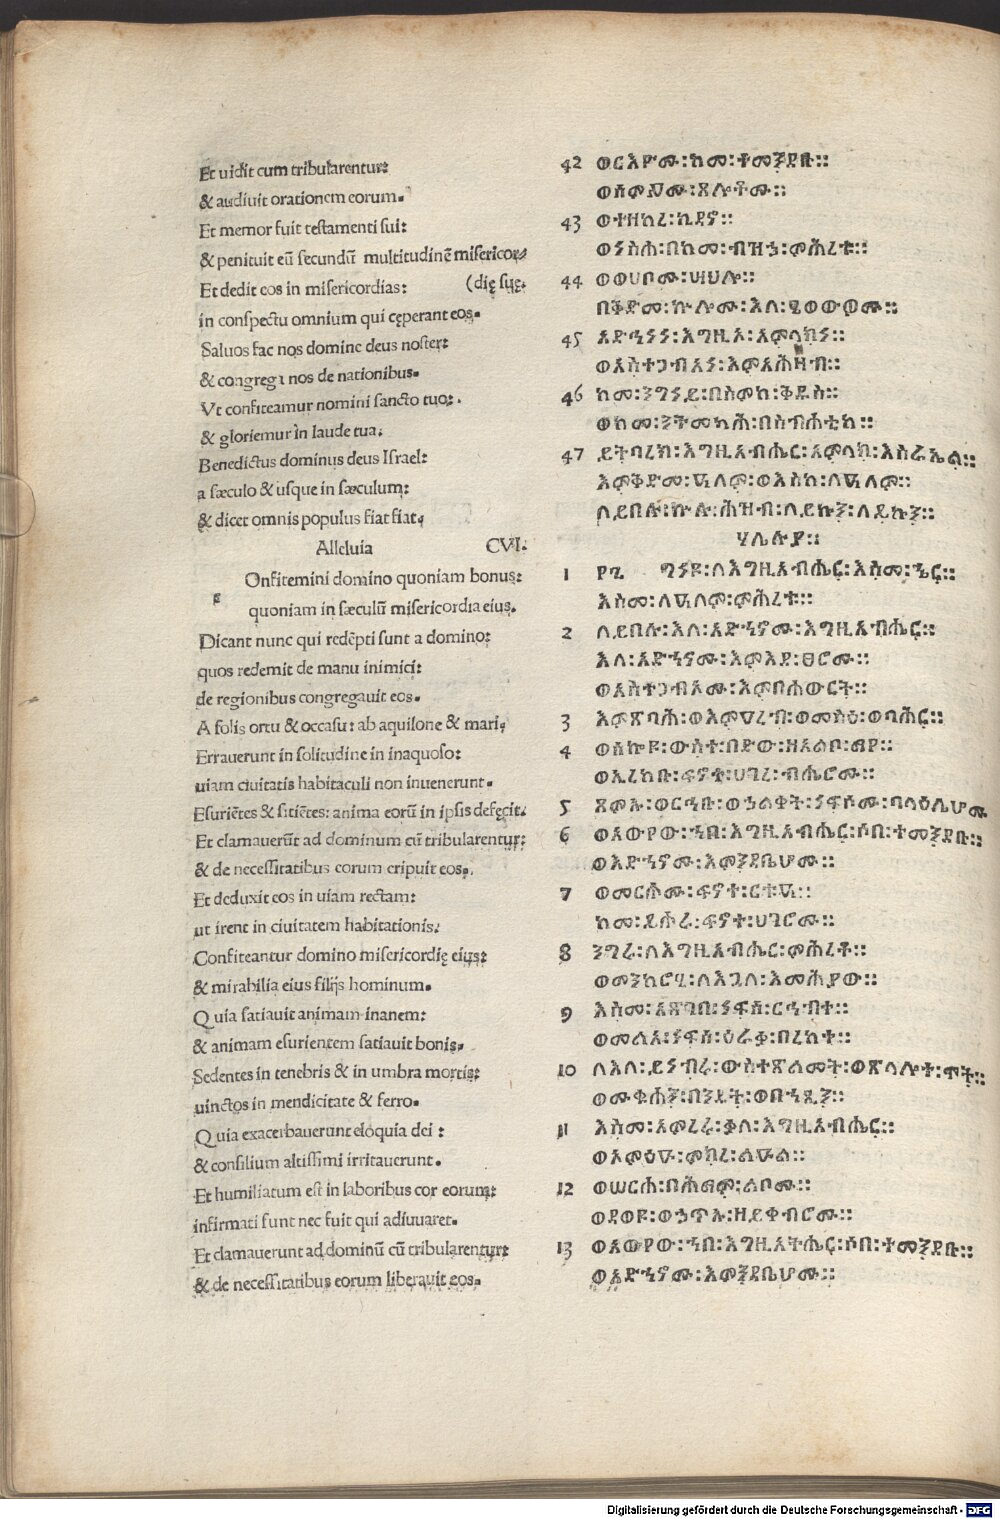 Et uidit cum tribularentur:
& audiuit orationem eorum.
Et memor fuit testamenti sui:
& penituit eū secundū multitudinē misericor-
Et dedit eos in misericordias: (dię suę.
in conspectu omnium qui cęperant eos.
Saluos fac nos domine deus noster:
& congrega nos de nationibus.
Vt confiteamur nomini sancto tuo:
& gloriemur in laude tua.
Benedictus dominus deus Israel:
a sæculo & usque in sæculum:
& dicet omnis populus fiat fiat.
Alleluia CVI.
Onfitemini domino quoniam bonus:
quoniam in sæculū misericordia eius.
Dicant nunc qui redēpti sunt a domino:
quos redemit de manu inimici:
de regionibus congregauit eos.
A solis ortu & occasu: ab aquilone & mari.
Errauerunt in solitudine in inaquoso:
uiam ciuitatis habitaculi non inuenerunt.
Esuriētes & sitiētes: anima eorū in ipsis defęcit.
Et clamauerūt ad dominum cū tribularentur:
& de necessitatibus eorum eripuit eos.
Et deduxit eos in uiam rectam:
ut irent in ciuitatem habitationis.
Confiteantur domino misericordię eius:
& mirabilia eius filijs hominum.
Quia satiauit animam inanem:
& animam esurientem satiauit bonis.
Sedentes in tenebris & in umbra mortis:
uinctos in mendicitate & ferro.
Quia exacerbauerunt eloquia dei :
& consilium altissimi irritauerunt.
Et humiliatum est in laboribus cor eorum:
infirmati sunt nec fuit qui adiuuaret.
Et clamauerunt ad dominū cū tribularentur:
& de necessitatibus eorum liberauit eos.
42 ወርእዮሙ፡ከመ፡ተመንደቡ፡፡
ወሰምዖሙ፡ጸሎቶሙ፡፡
43 ወተዘከረ፡ኪዳኖ፡፡
ወነስሐ፡በከመ፡ብዝኃ፡ምሕረቱ፡፡
44 ወወሀቦሙ፡ሣህሎ፡፡
በቅድመ፡ኵሎሙ፡እለ፡ፄወውዎሙ፡፡
45 አድኅነነ፡እግዚኦ፡አምላክነ፡፡
ወአስተጋብአነ፡እምአሕዛብ፡፡
46 ከመ፡ንግነይ፡በስምከ፡ቅዱስ፡፡
ወከመ፡ንትመካሕ፡በስብሐቲከ፡፡
47 ይትባረክ፡እግዚአብሔር፡አምላክ፡እስራኤል፡፡
እምቅድመ፡ዓለም፡ወእስከ፡ለዓለም፡፡
ለይበሉ፡ኵሉ፡ሕዝብ፡ለይኩን፡ለይኩን፡፡
ሃሌሉያ፡፡
1 ፻፮ ግነዩ፡ለእግዚአብሔር፡እስመ፡ኄር፡፡
እስመ፡ለዓለም፡ምሕረቱ፡፡
2 ለይበሉ፡እለ፡አድኀኖሙ፡እግዚአብሔር፡፡
እለ፡አድኀኖሙ፡እምእደ፡ፀሮሙ፡፡
ወአስተጋብኦሙ፡እምበሐውርት፡፡
3 እምጽባሕ፡ወእምዐረብ፡ወመስዕ፡ወባሕር፡፡
4 ወስኰዩ፡ውስተ፡በድው፡ዘአልቦ፡ማየ፡፡
ወኢረከቡ፡ፍኖተ፡ሀገረ፡ብሔሮሙ፡፡
5 ጸምኡ፡ወርኅቡ፡ወኃልቀት፡ነፍሶሙ፡በላዕሌሆሙ
6 ወአውየው፡ኀበ፡እግዚአብሔር፡ሶበ፡ተመንደቡ፡፡
ወአድኀኖሙ፡እምንዳቤሆሙ፡፡
7 ወመርሖሙ፡ፍኖተ፡ርቱዓ፡፡
ከመ፡ይሖሩ፡ፍኖተ፡ሀገሮሙ፡፡
8 ንግሩ፡ለእግዚአብሔር፡ምሕረቶ፡፡
ወመንክሮሂ፡ለእጓለ፡እመሕያው፡፡
9 እስመ፡አጽገበ፡ነፍሰ፡ርኅብተ፡፡
ወመልአ፡ነፍሰ፡ዕራቃ፡በረከተ፡፡
10 ለእለ፡ይነብሩ፡ውስተ፡ጽልመት፡ወጽላሎተ፡ሞት፡፡
ወሙቁሓን፡በንዴት፡ወበኀጺን፡፡
11 እስመ፡አምረሩ፡ቃለ፡እግዚአብሔር፡፡
ወአምዕዑ፡ምክረ፡ልዑል፡፡
12 ወሠርሐ፡በሕማም፡ልቦሙ፡፡
ወደወዩ፡ወኃጥኡ፡ዘይቀብሮሙ፡፡
13 ወአውየው፡ኀበ፡እግዚአብሔር፡ሶበ፡ተመንደቡ፡፡
ወአድኀኖሙ፡እምንዳቤሆሙ፡፡
Digitalisierung gefördert durch die Deutsche Forschungsgemeinschaft - DFG